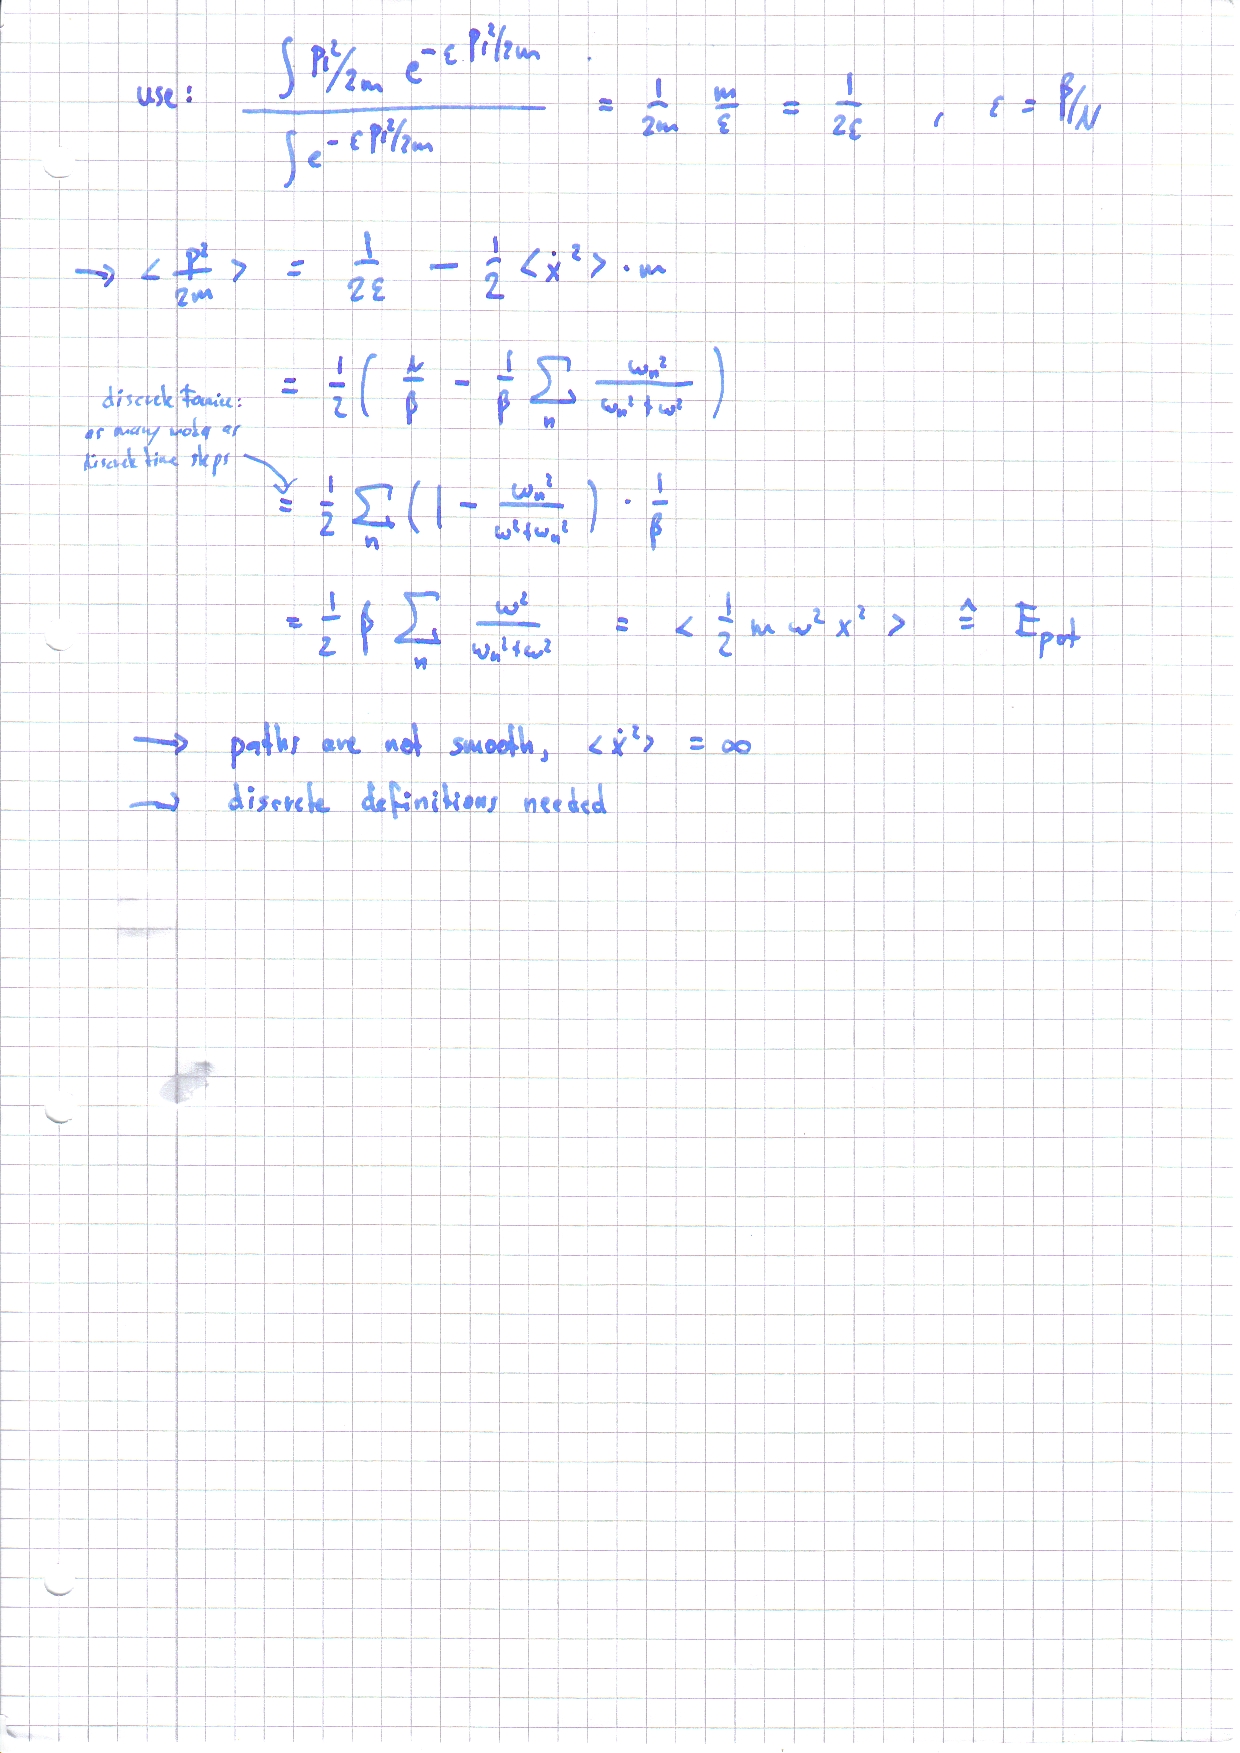 use: ∫ Pi²/2m e^(-ε Pi²/2m) / ∫ e^(-ε Pi²/2m) = 1/2m m/ε = 1/2ε , ε = β/N
→ < P²/2m > = 1/2ε - 1/2 < ẋ² > · m
= 1/2 ( N/β - 1/β ∑_n ω_n²/(ω_n² + ω²) )
discrete Fourier:
as many modes as
discrete time steps
= 1/2 ∑_n ( 1 - ω_n²/(ω² + ω_n²) ) · 1/β
= 1/2 β ∑_n ω²/(ω_n² + ω²) = < 1/2 m ω² x² > ≙ E_pot
→ paths are not smooth, < ẋ² > = ∞
→ discrete definitions needed